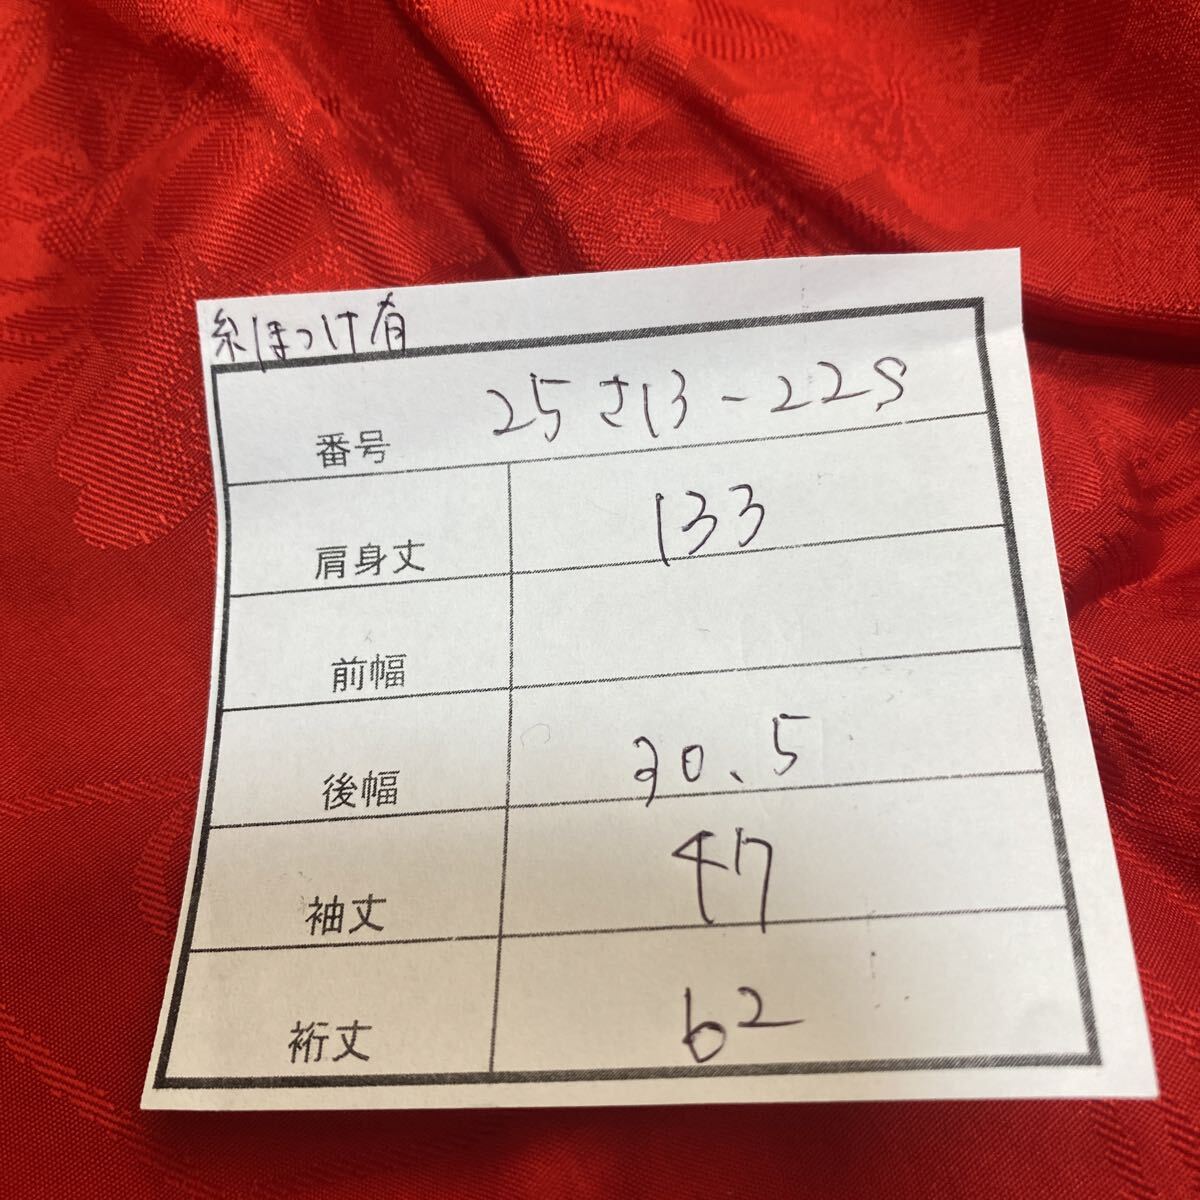 糸ほつけ有
番号 25さ13-22S
肩身丈 133
前幅
後幅 30.5
袖丈 47
裄丈 62